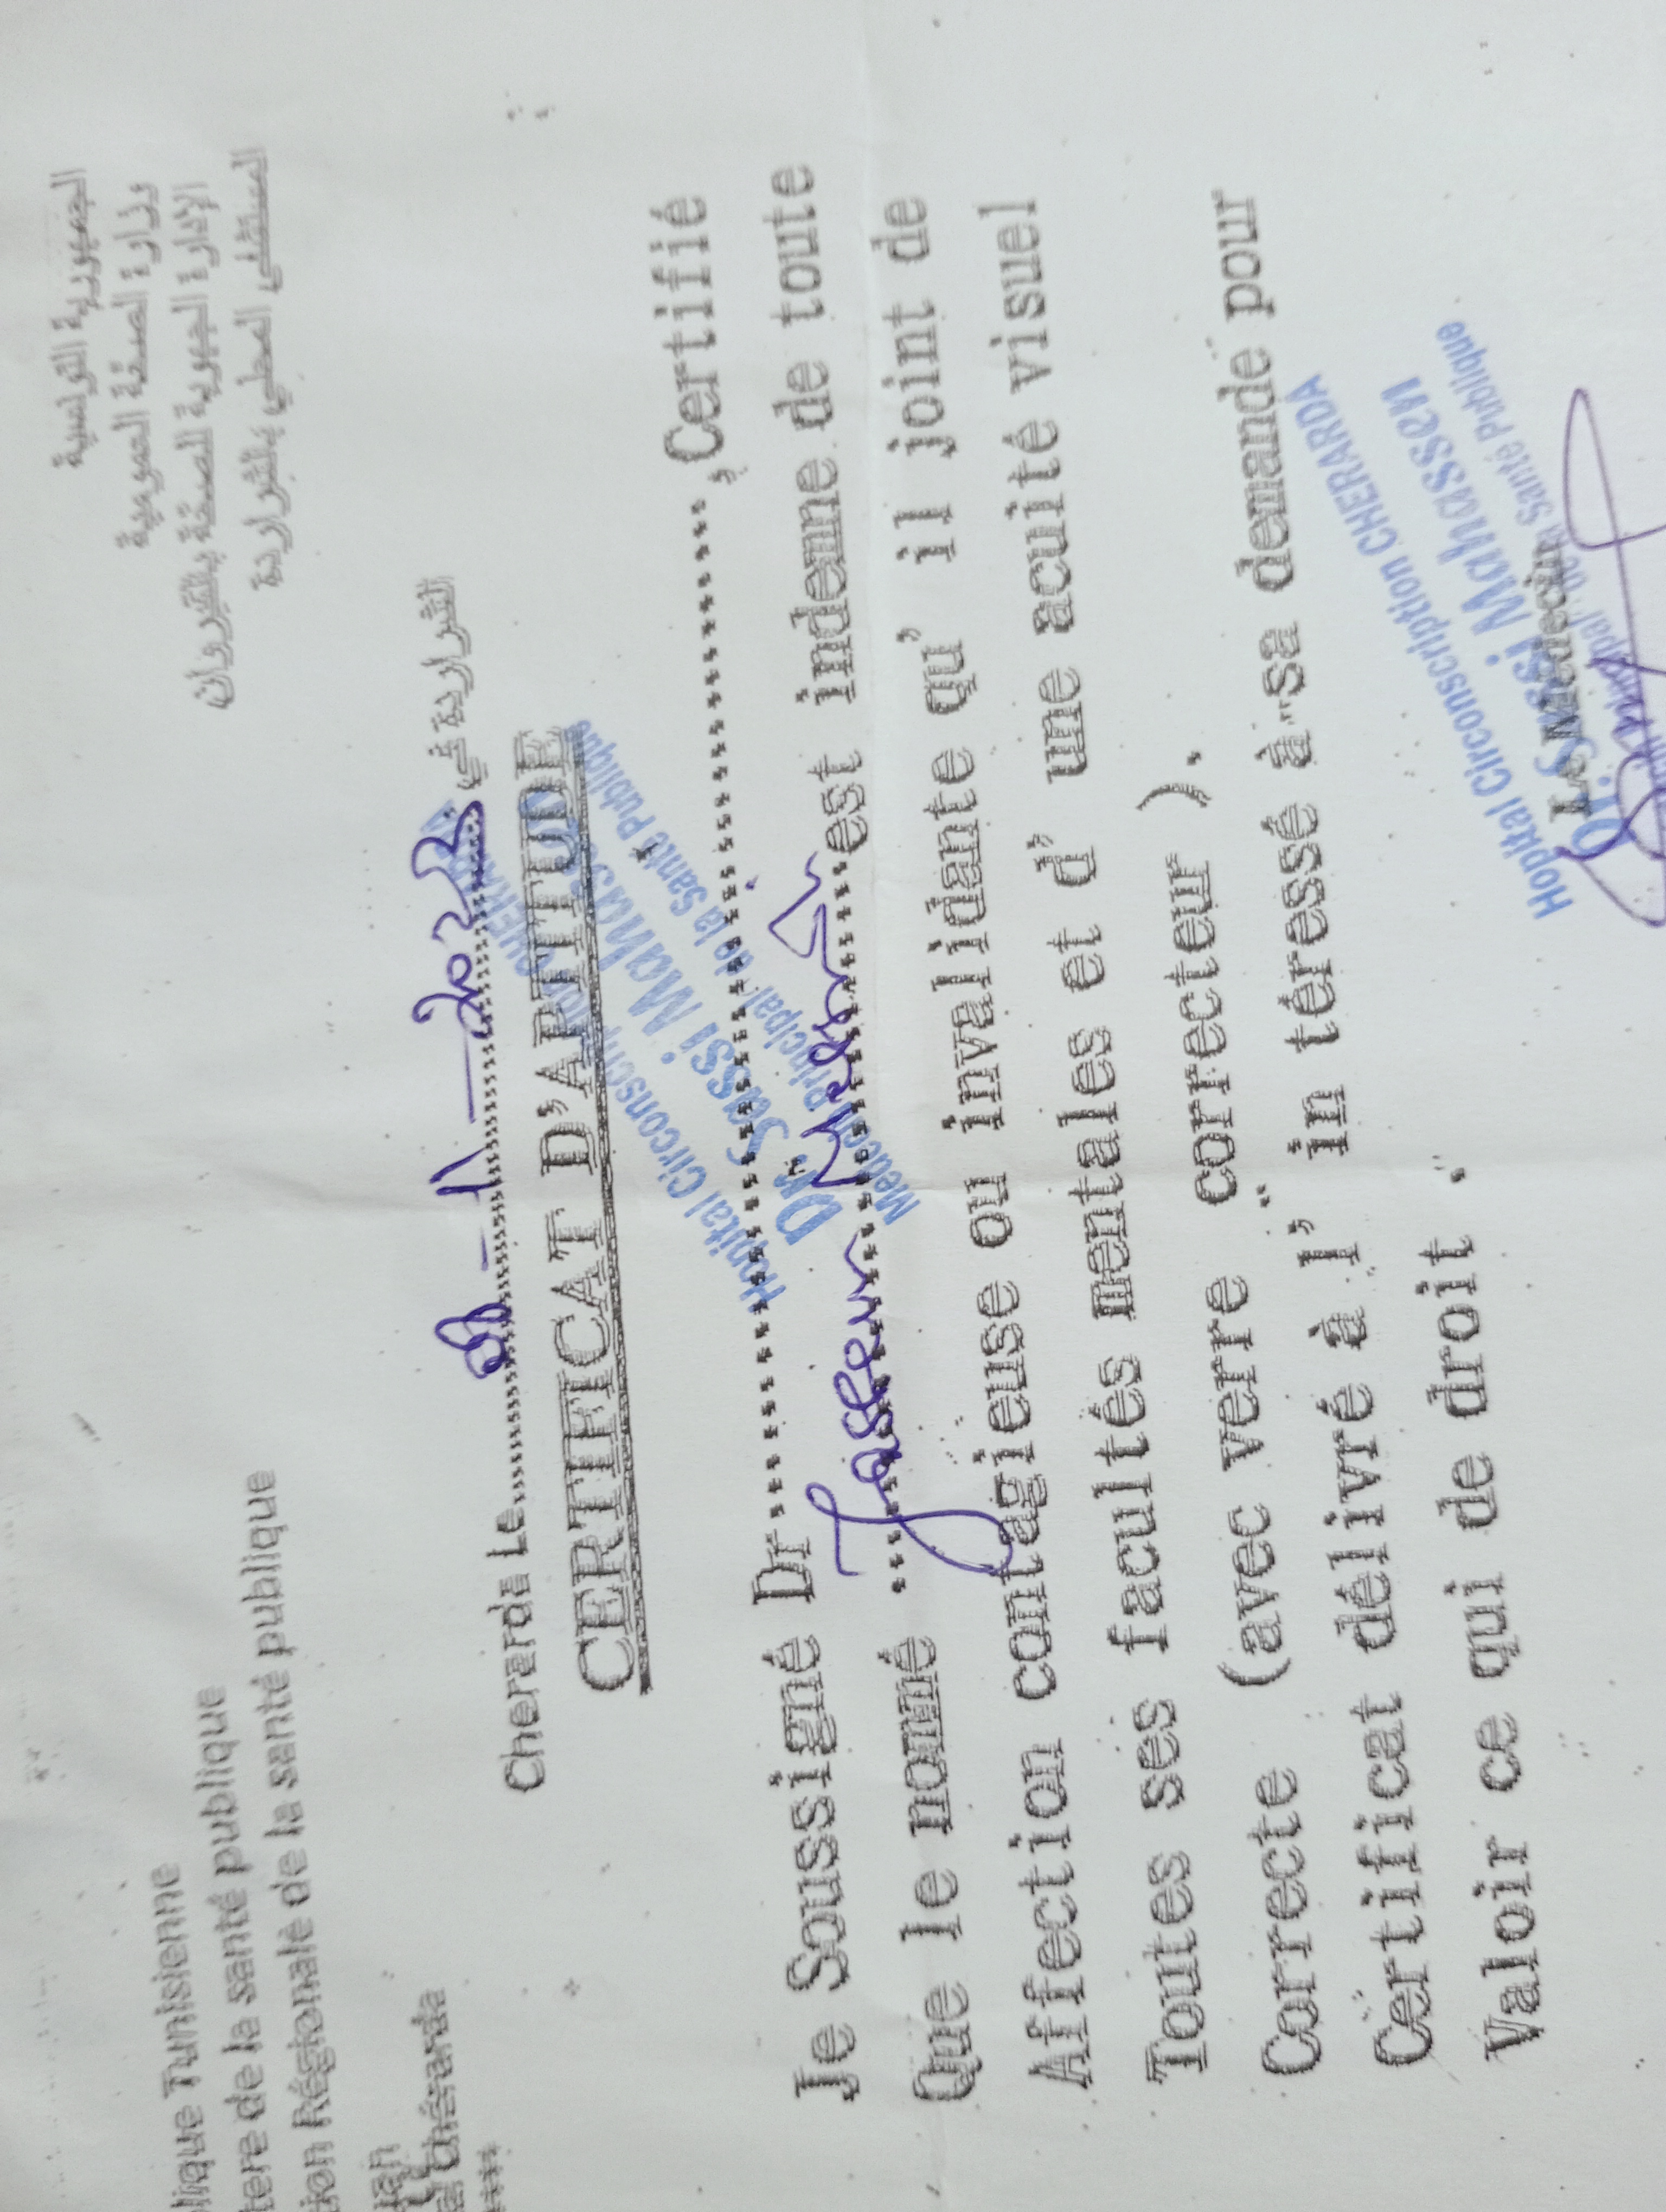 الجمهورية التونسية
وزارة الصحة العمومية
الإدارة الجهوية للصحة بالقيروان
المستشفى المحلي بالشراردة
blique Tunisienne
tere de la santé publique
ion Régionale de la santé publique
Chérarda
****
Cherarda Le 2023 الشراردة في
CERTIFICAT D'APTITUDE
Hopital Circonscription CHERARDA
Dr. Sassi Mahassen
Medecin Principal de la Santé Publique
Je Soussigné Dr , Certifié
Que le nommé est indemne de toute
Affection contagieuse ou invalidante qu' il joint de
Toutes ses facultés mentales et d' une acuité visuel
Correcte (avec verre correcteur ).
Certificat délivré à l' in téressé à sa demande pour
Valoir ce qui de droit .
Hopital Circonscription CHERARDA
Dr. Sassi Mahassen
Principal de la Santé Publique
Le Médecin